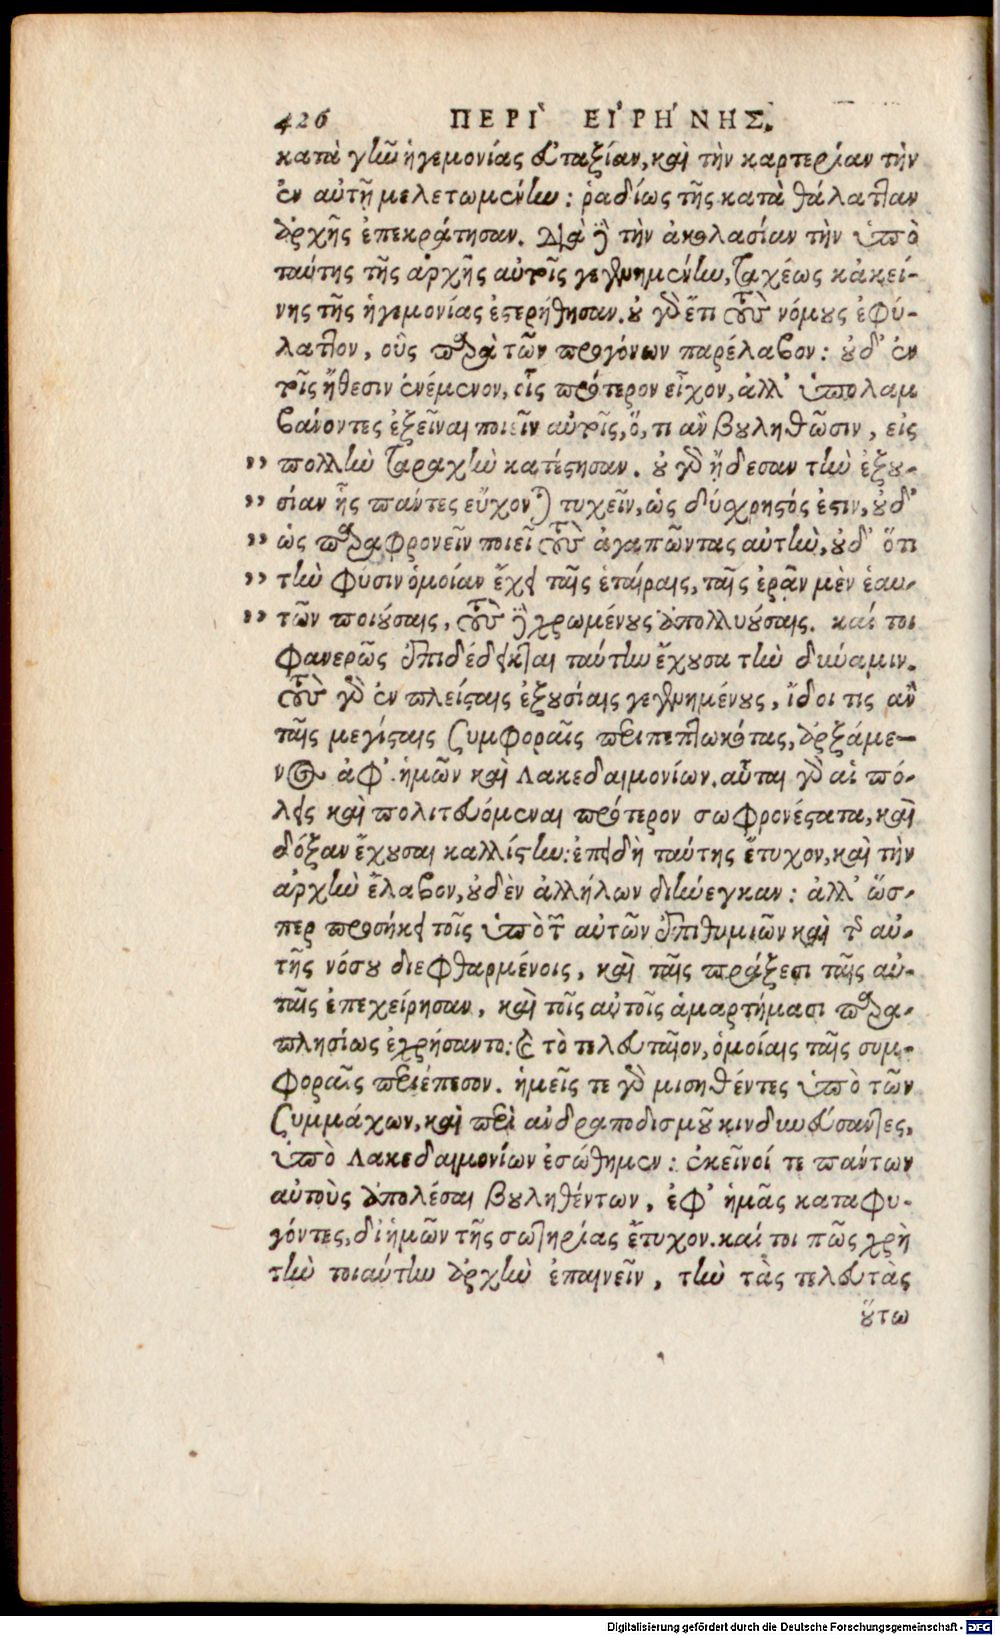 426 ΠΕΡΙ` ΕΙ'ΡΗ'ΝΗΣ.
κατὰ γῆν ἡγεμονίας εὐταξίαν, καὶ τὴν καρτερίαν τὴν
ἐν αὐτῇ μελετωμένην: ῥαδίως τῆς κατὰ θάλατταν
ἀρχῆς ἐπεκράτησαν. Διὰ δὲ τὴν ἀκολασίαν τὴν ὑπὸ
ταύτης τῆς ἀρχῆς αὐτοῖς γεγενημένην, ταχέως κἀκεί-
νης τῆς ἡγεμονίας ἐστερήθησαν. οὐ γὰρ ἔτι τοὺς νόμους ἐφύ-
λαττον, οὓς παρὰ τῶν προγόνων παρέλαβον: οὐδ' ἐν
τοῖς ἤθεσιν ἐνέμενον, οἷς πρότερον εἶχον, ἀλλ' ὑπολαμ
βάνοντες ἐξεῖναι ποιεῖν αὐτοῖς, ὅ, τι ἂν βουληθῶσιν, εἰς
,, πολλὴν ταραχὴν κατέστησαν. οὐ γὰρ ᾔδεσαν τὴν ἐξου-
,, σίαν ἧς πάντες εὔχονται τυχεῖν, ὡς δύσχρηστός ἐστιν, οὐδ'
,, ὡς παραφρονεῖν ποιεῖ τοὺς ἀγαπῶντας αὐτὴν, οὐδ' ὅτι
,, τὴν φύσιν ὁμοίαν ἔχει ταῖς ἑταίραις, ταῖς ἐρᾶν μὲν ἑαυ-
,, τῶν ποιούσαις, τοὺς δὲ χρωμένους ἀπολλυούσαις. καί τοι
φανερῶς ἐπιδέδεικται ταύτην ἔχουσα τὴν δύναμιν.
τοὺς γὰρ ἐν πλείσταις ἐξουσίαις γεγενημένους, ἴδοι τις ἂν
ταῖς μεγίσταις συμφοραῖς περιπεπτωκότας, ἀρξάμε-
νος ἀφ' ἡμῶν καὶ Λακεδαιμονίων. αὗται γὰρ αἱ πό-
λεις καὶ πολιτευόμεναι πρότερον σωφρονέστατα, καὶ
δόξαν ἔχουσαι καλλίστην: ἐπειδὴ ταύτης ἔτυχον, καὶ τὴν
ἀρχὴν ἔλαβον, οὐδὲν ἀλλήλων διήνεγκαν: ἀλλ' ὥσ-
περ προσήκει τοῖς ὑπὸ τῶν αὐτῶν ἐπιθυμιῶν καὶ τῆς αὐ-
τῆς νόσου διεφθαρμένοις, καὶ ταῖς πράξεσι ταῖς αὐ-
ταῖς ἐπεχείρησαν, καὶ τοῖς αὐτοῖς ἁμαρτήμασι παρα-
πλησίως ἐχρήσαντο: καὶ τὸ τελευταῖον, ὁμοίαις ταῖς συμ-
φοραῖς περιέπεσον. ἡμεῖς τε γὰρ μισηθέντες ὑπὸ τῶν
συμμάχων, καὶ περὶ ἀνδραποδισμοῦ κινδυνεύσαντες,
ὑπὸ Λακεδαιμονίων ἐσώθημεν: ἐκεῖνοί τε πάντων
αὐτοὺς ἀπολέσαι βουληθέντων, ἐφ' ἡμᾶς καταφυ-
γόντες, δι' ἡμῶν τῆς σωτηρίας ἔτυχον. καί τοι πῶς χρὴ
τὴν τοιαύτην ἀρχὴν ἐπαινεῖν, τὴν τὰς τελευτὰς
οὕτω
Digitalisierung gefördert durch die Deutsche Forschungsgemeinschaft - DFG